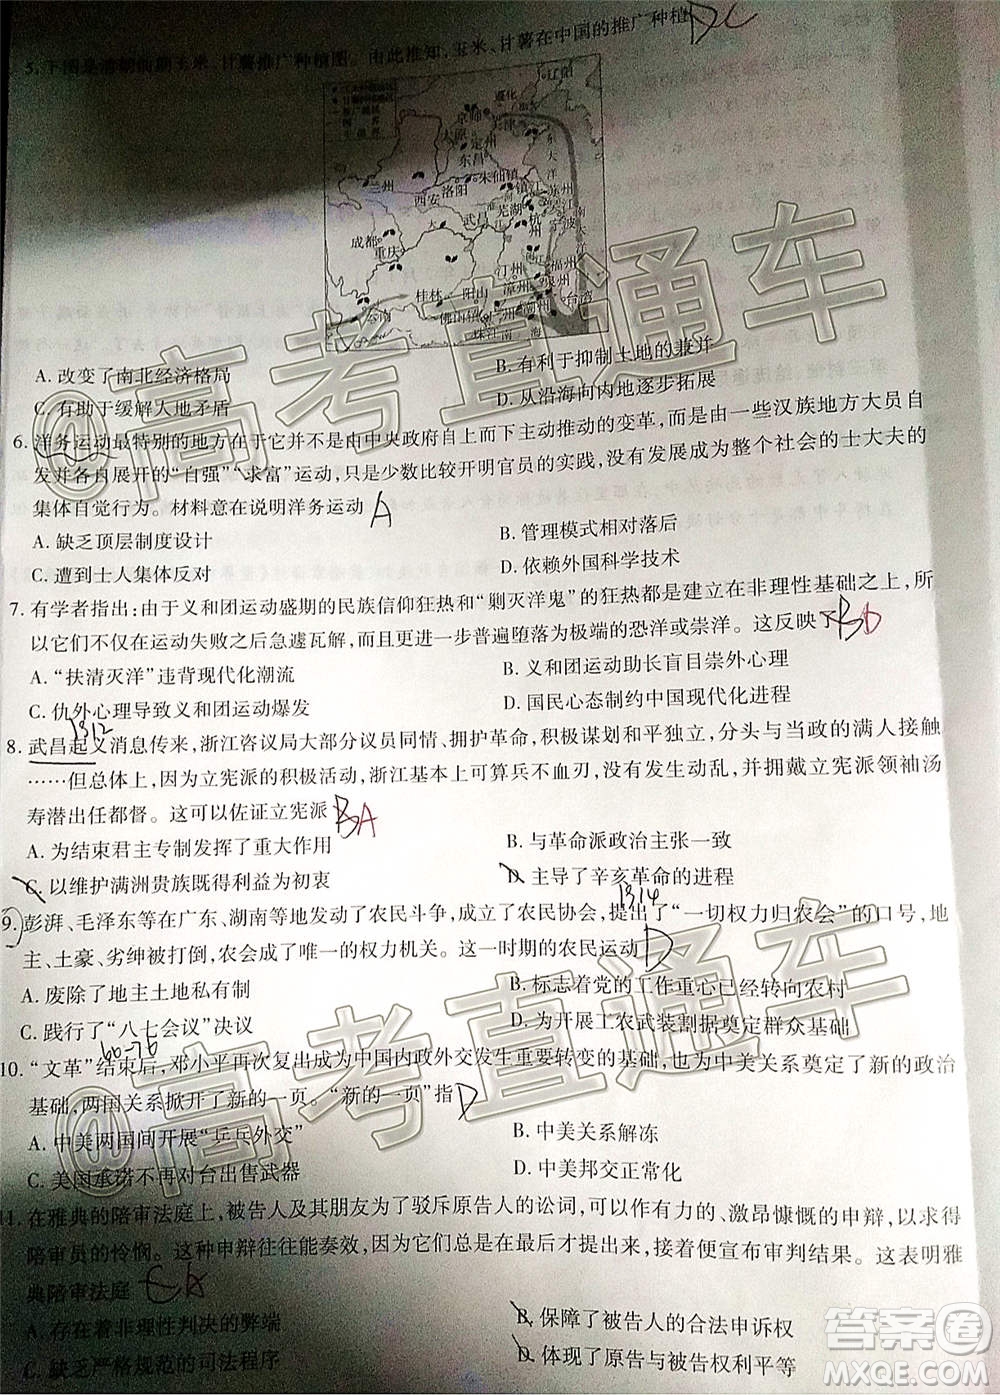 5.下图是清朝前期玉米、甘薯推广种植图。由此推知,玉米、甘薯在中国的推广种植 DC
辽阳
遵化
京师
天津
太原
定州
东昌
兰州
西安 洛阳 朱仙镇
镇江
苏州
芜湖
宁波
武昌
杭州
成都
重庆
东大洋
南大洋
汀州
福州
泉州
桂林 阳山
漳州
潮州
台湾
云南
佛山
珠江 南海
A. 改变了南北经济格局
B. 有利于抑制土地的兼并
C. 有助于缓解人地矛盾
D. 从沿海向内地逐步拓展
6. 洋务运动最特别的地方在于它并不是由中央政府自上而下主动推动的变革,而是由一些汉族地方大员自
发并各自展开的“自强”“求富”运动,只是少数比较开明官员的实践,没有发展成为整个社会的士大夫的
集体自觉行为。材料意在说明洋务运动 A
A. 缺乏顶层制度设计
B. 管理模式相对落后
C. 遭到士人集体反对
D. 依赖外国科学技术
7. 有学者指出:由于义和团运动盛期的民族信仰狂热和“剿灭洋鬼”的狂热都是建立在非理性基础之上,所
以它们不仅在运动失败之后急遽瓦解,而且更进一步普遍堕落为极端的恐洋或崇洋。这反映 BD
A. “扶清灭洋”违背现代化潮流
B. 义和团运动助长盲目崇外心理
C. 仇外心理导致义和团运动爆发
D. 国民心态制约中国现代化进程
1312
8. 武昌起义消息传来,浙江咨议局大部分议员同情、拥护革命,积极谋划和平独立,分头与当政的满人接触
……但总体上,因为立宪派的积极活动,浙江基本上可算兵不血刃,没有发生动乱,并拥戴立宪派领袖汤
寿潜出任都督。这可以佐证立宪派 BA
A. 为结束君主专制发挥了重大作用
B. 与革命派政治主张一致
C. 以维护满洲贵族既得利益为初衷
D. 主导了辛亥革命的进程
1314
9. 彭湃、毛泽东等在广东、湖南等地发动了农民斗争,成立了农民协会,提出了“一切权力归农会”的口号,地
主、土豪、劣绅被打倒,农会成了唯一的权力机关。这一时期的农民运动 D
A. 废除了地主土地私有制
B. 标志着党的工作重心已经转向农村
C. 践行了“八七会议”决议
D. 为开展工农武装割据奠定群众基础
66-76
10. “文革”结束后,邓小平再次复出成为中国内政外交发生重要转变的基础,也为中美关系奠定了新的政治
基础,两国关系掀开了新的一页。“新的一页”指 D
A. 中美两国间开展“乒乓外交”
B. 中美关系解冻
C. 美国承诺不再对台出售武器
D. 中美邦交正常化
11. 在雅典的陪审法庭上,被告人及其朋友为了驳斥原告人的讼词,可以进行有力的、激昂慷慨的申辩,以求得
陪审员的怜悯。这种申辩往往能奏效,因为它们总是在最后才提出来,接着便宣布审判结果。这表明雅
典陪审法庭 CA
A. 存在着非理性判决的弊端
B. 保障了被告人的合法申诉权
C. 缺乏严格规范的司法程序
D. 体现了原告与被告权利平等
@高考直通车
@高考直通车
答案圈
MXQE.COM